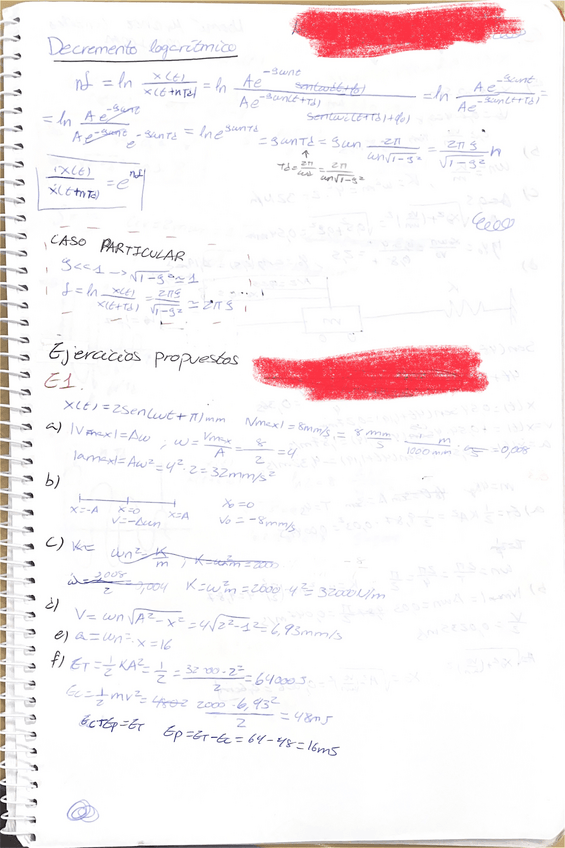 Decremento logarítmico
nδ = ln x(t)/x(t+nTd) = ln Ae^-ζωnt sen(ωdt+φ)/Ae^-ζωn(t+Td) sen(ωd(t+Td)+φ) = ln A·e^-ζωnt/Ae^-ζωn(t+Td) =
= ln Ae^-ζωnt/Ae^-ζωnt e^-ζωnTd = ln e^ζωnTd = ζωnTd = ζωn 2π/ωn√1-ζ² = 2πζ/√1-ζ² n
↑
Td = 2π/ωd = 2π/ωn√1-ζ²
x(t)/x(t+nTd) = e^nδ
CASO PARTICULAR
ζ<<1 → √1-ζ² ≃ 1
δ = ln x(t)/x(t+Td) = 2πζ/√1-ζ² ≃ 2πζ
Ejercicios propuestos
E1.
x(t) = 2sen(ωt+π)mm Vmax = 8mm/s = 8 mm/s · m/1000mm = 0,008
a) |Vmax| = Aω ; ω = Vmax/A = 8/2 = 4
|amax| = Aω² = 4²·2 = 32mm/s²
b)
x=-A x=0 x=A x₀=0
V=-Aωn v₀ = -8mm/s
c) ωn² = K/m ; K = ω²m = 2000
ω = 2008/2 = 1,004 K = ω²m = 2000·4² = 32000N/m
d) V = ωn√A²-x² = 4√2²-1² = 6,93mm/s
e) a = ωn²·x = 16
f) ET = 1/2 KA² = 1/2 = 32000·2²/2 = 64000J
Ec = 1/2 mv² = 2000·6,93²/2 = 48mJ
Ec+Ep=ET Ep = ET-Ec = 64-48 = 16mJ